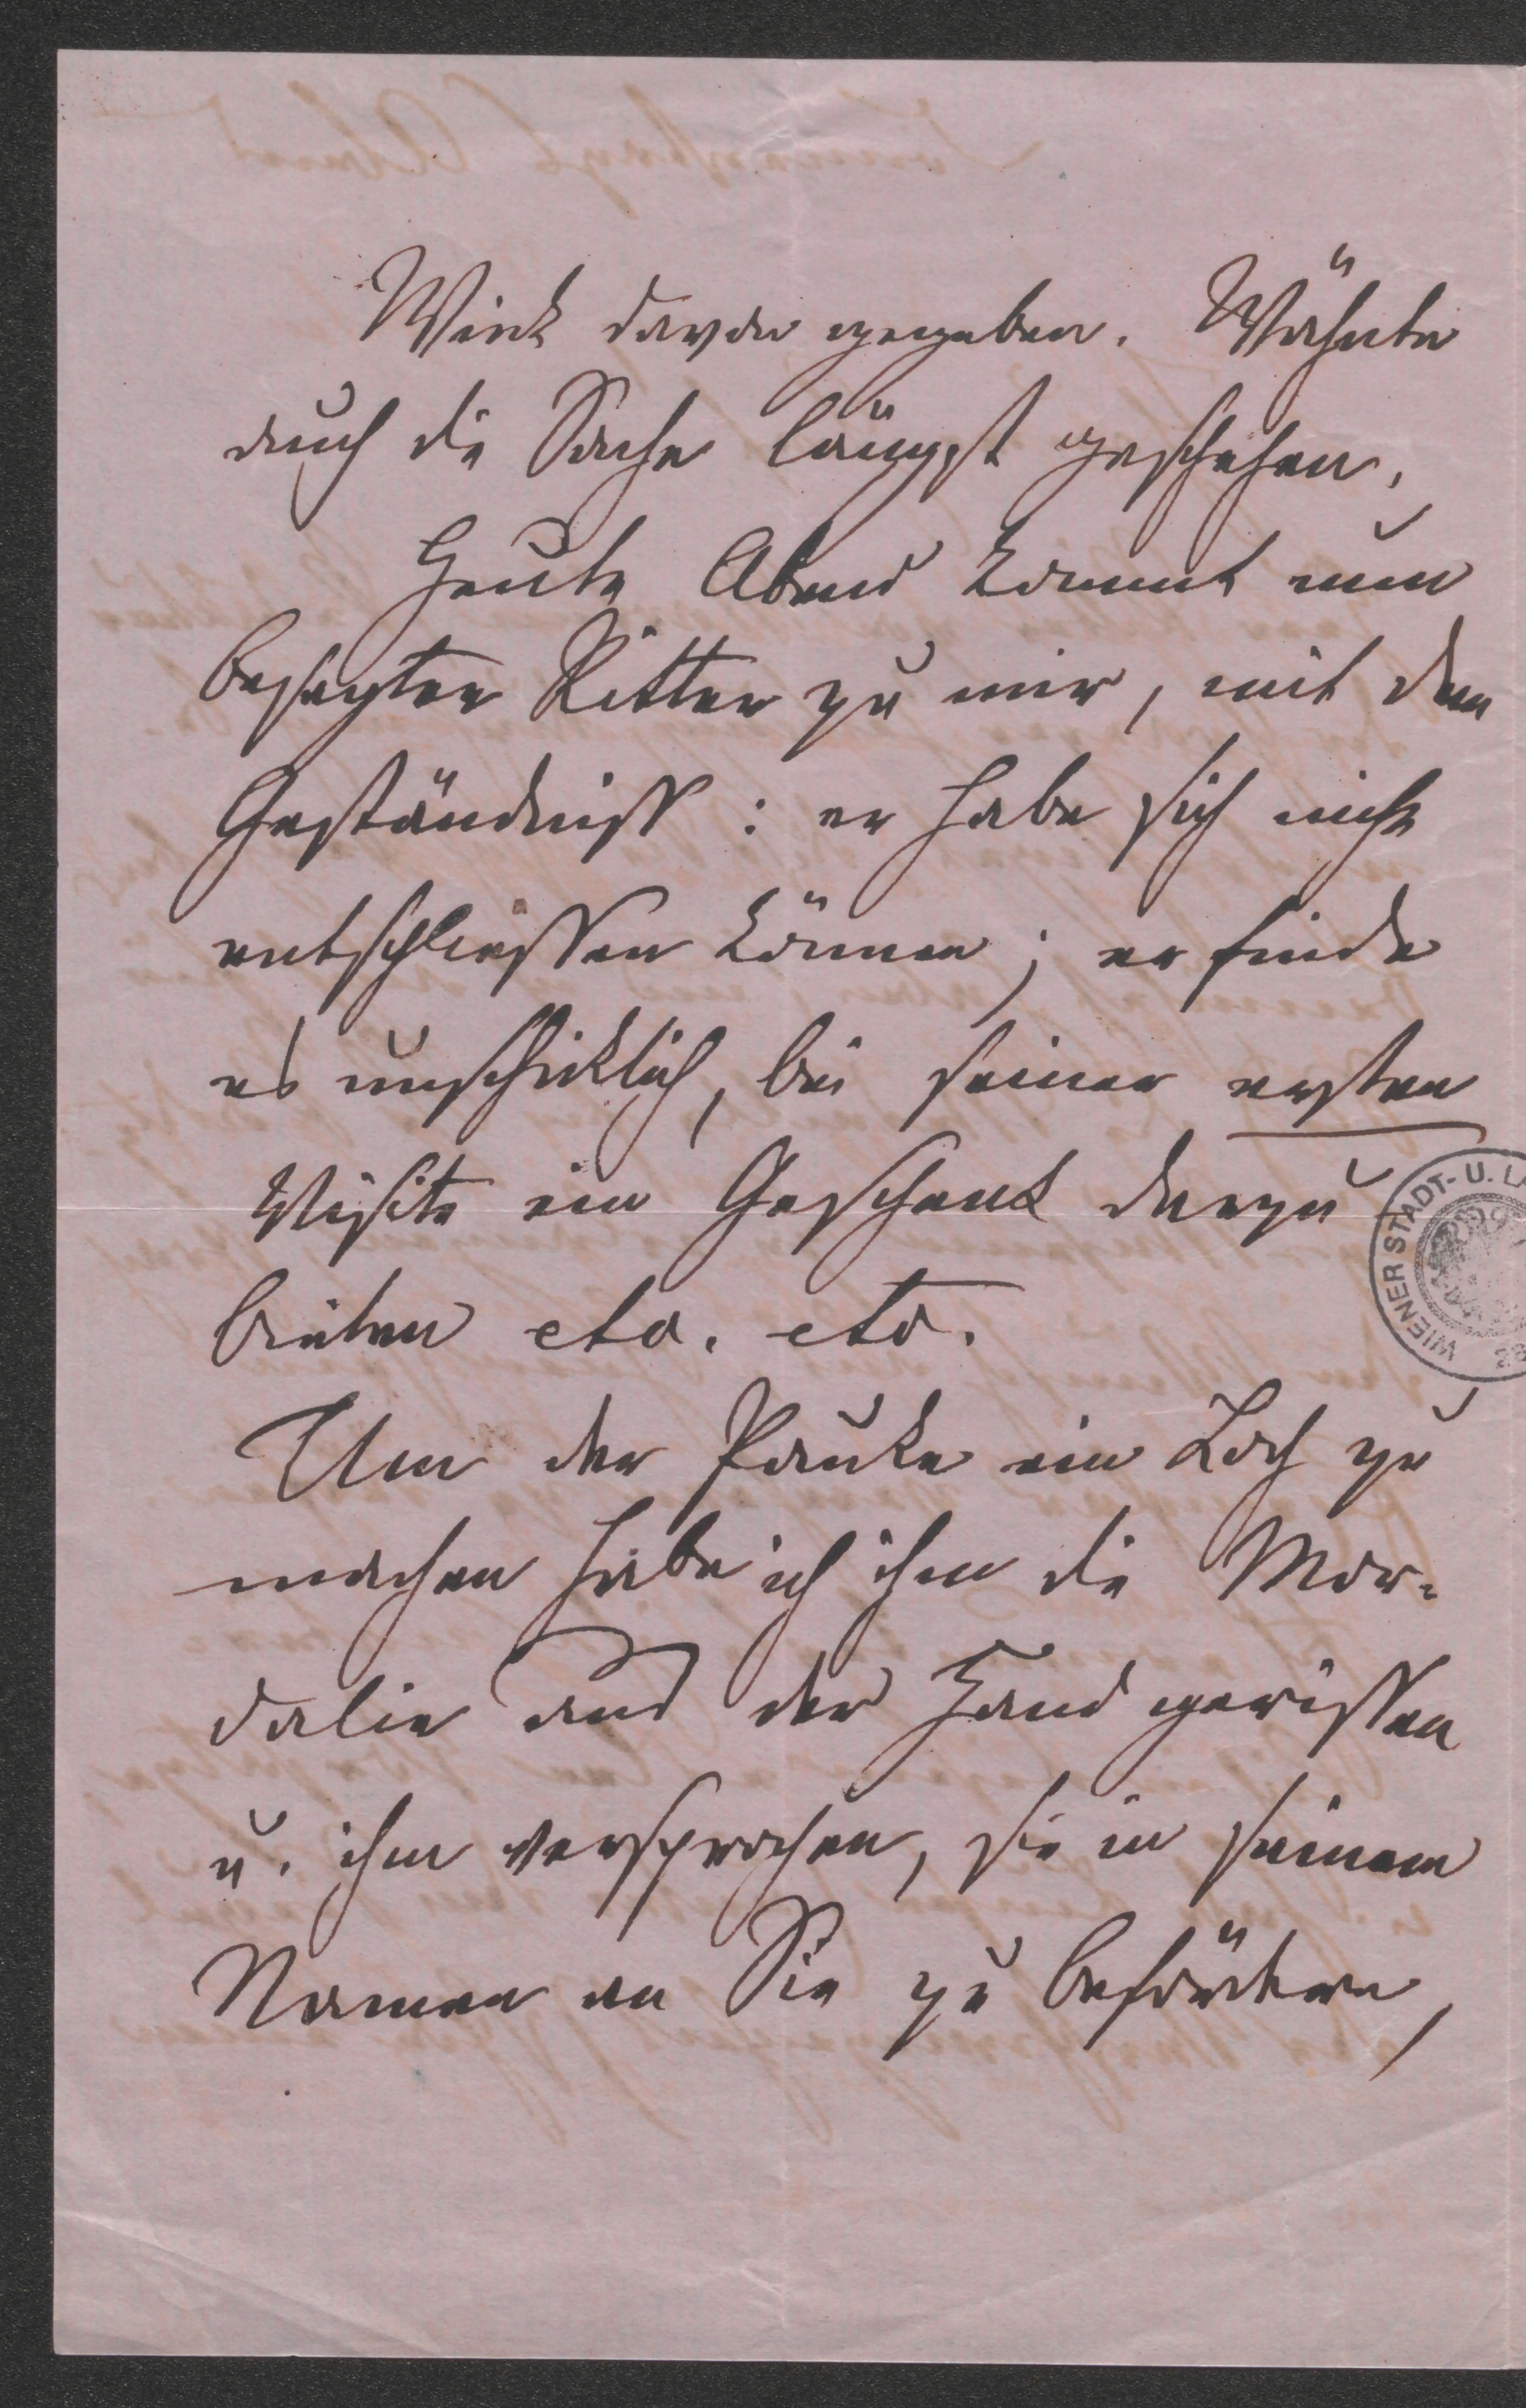 Wink davon gegeben. Wähnte
auch die Sache längst geschehen.
Heute Abend kommt nun
besagter Ritter zu mir, mit dem
Geständniß: er habe sich nicht
entschliessen können; er finde
es unschicklich, bei seiner ersten
Visite ein Geschenk darzu
bieten etc. etc.
Um der Pauke ein Loch zu
machen habe ich ihm die Mor-
dalie aus der Hand gerissen
u. ihm versprochen, sie in seinem
Namen an Sie zu befördern,
WIENER STADT- U. L